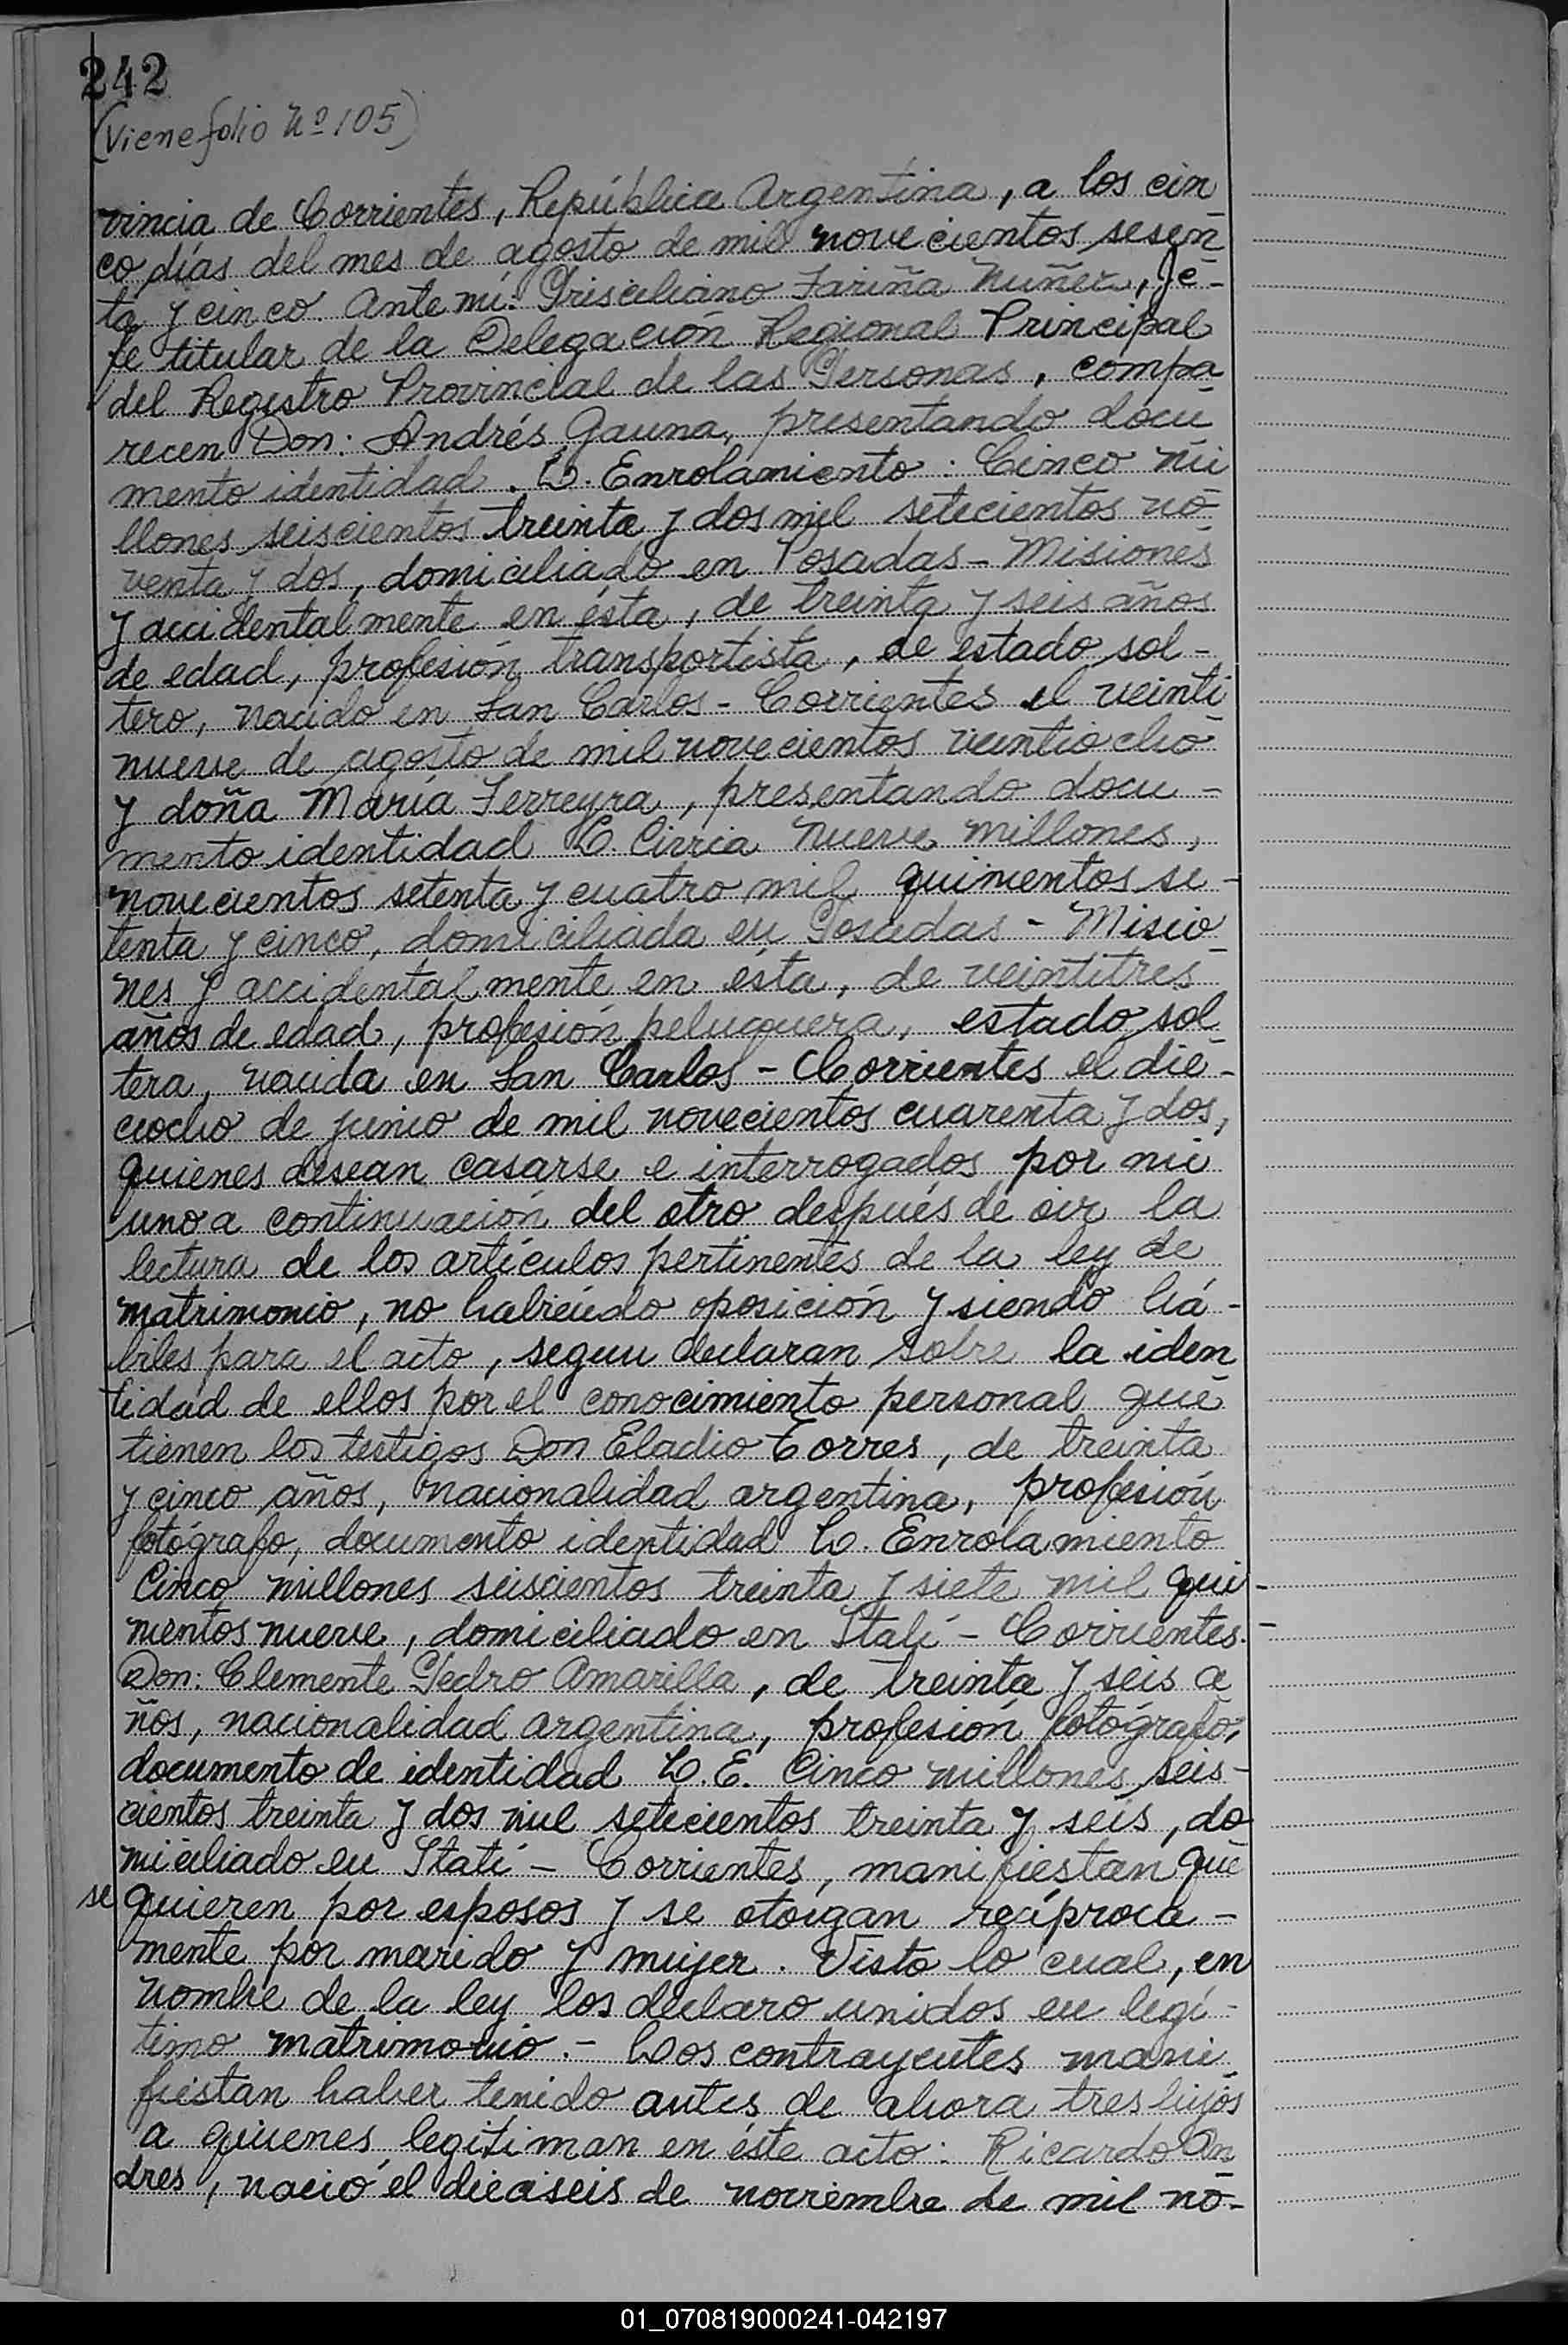 242
(Viene folio Nº 105)
vincia de Corrientes, República Argentina, a los cin
co días del mes de agosto de mil novecientos sesen
ta y cinco. Ante mí: Prisciliano Fariña Nuñez, je-
fe titular de la Delegación Regional Principal
del Registro Provincial de las Personas, compa
recen Don: Andrés Gauna, presentando docu
mento identidad. L. Enrolamiento: Cinco mi
llones seiscientos treinta y dos mil setecientos no
venta y dos, domiciliado en Posadas - Misiones
y accidentalmente en ésta, de treinta y seis años
de edad, profesión transportista, de estado sol-
tero, nacido en San Carlos - Corrientes el veinti
nueve de agosto de mil novecientos veintiocho
y doña María Ferreyra, presentando docu-
mento identidad L. Cívica nueve millones,
novecientos setenta y cuatro mil quinientos se-
tenta y cinco, domiciliada en Posadas - Misio
nes y accidentalmente en ésta, de veintitres
años de edad, profesión peluquera, estado sol
tera, nacida en San Carlos - Corrientes el die-
ciocho de junio de mil novecientos cuarenta y dos,
quienes desean casarse e interrogados por mi
uno a continuación del otro después de oir la
lectura de los artículos pertinentes de la ley de
matrimonio, no habiendo oposición y siendo há-
biles para el acto, segun declaran sobre la iden
tidad de ellos por el conocimiento personal que
tienen los testigos Don Eladio Torres, de treinta
y cinco años, nacionalidad argentina, profesión
fotógrafo, documento identidad L. Enrolamiento
Cinco millones seiscientos treinta y siete mil qui-
nientos nueve, domiciliado en Itatí - Corrientes.-
Don: Clemente Pedro Amarilla, de treinta y seis a
ños, nacionalidad argentina, profesión fotógrafo,
documento de identidad L.E. Cinco millones seis-
cientos treinta y dos mil setecientos treinta y seis, do
miciliado en Itatí - Corrientes, manifiestan que
se quieren por esposos y se otorgan recíproca-
mente por marido y mujer. Visto lo cual, en
nombre de la ley los declaro unidos en legí-
timo matrimonio.- Los contrayentes mani
fiestan haber tenido antes de ahora tres hijos
a quienes legitiman en éste acto: Ricardo An
dres, nació el dieciseis de noviembre de mil no-
01_070819000241-042197